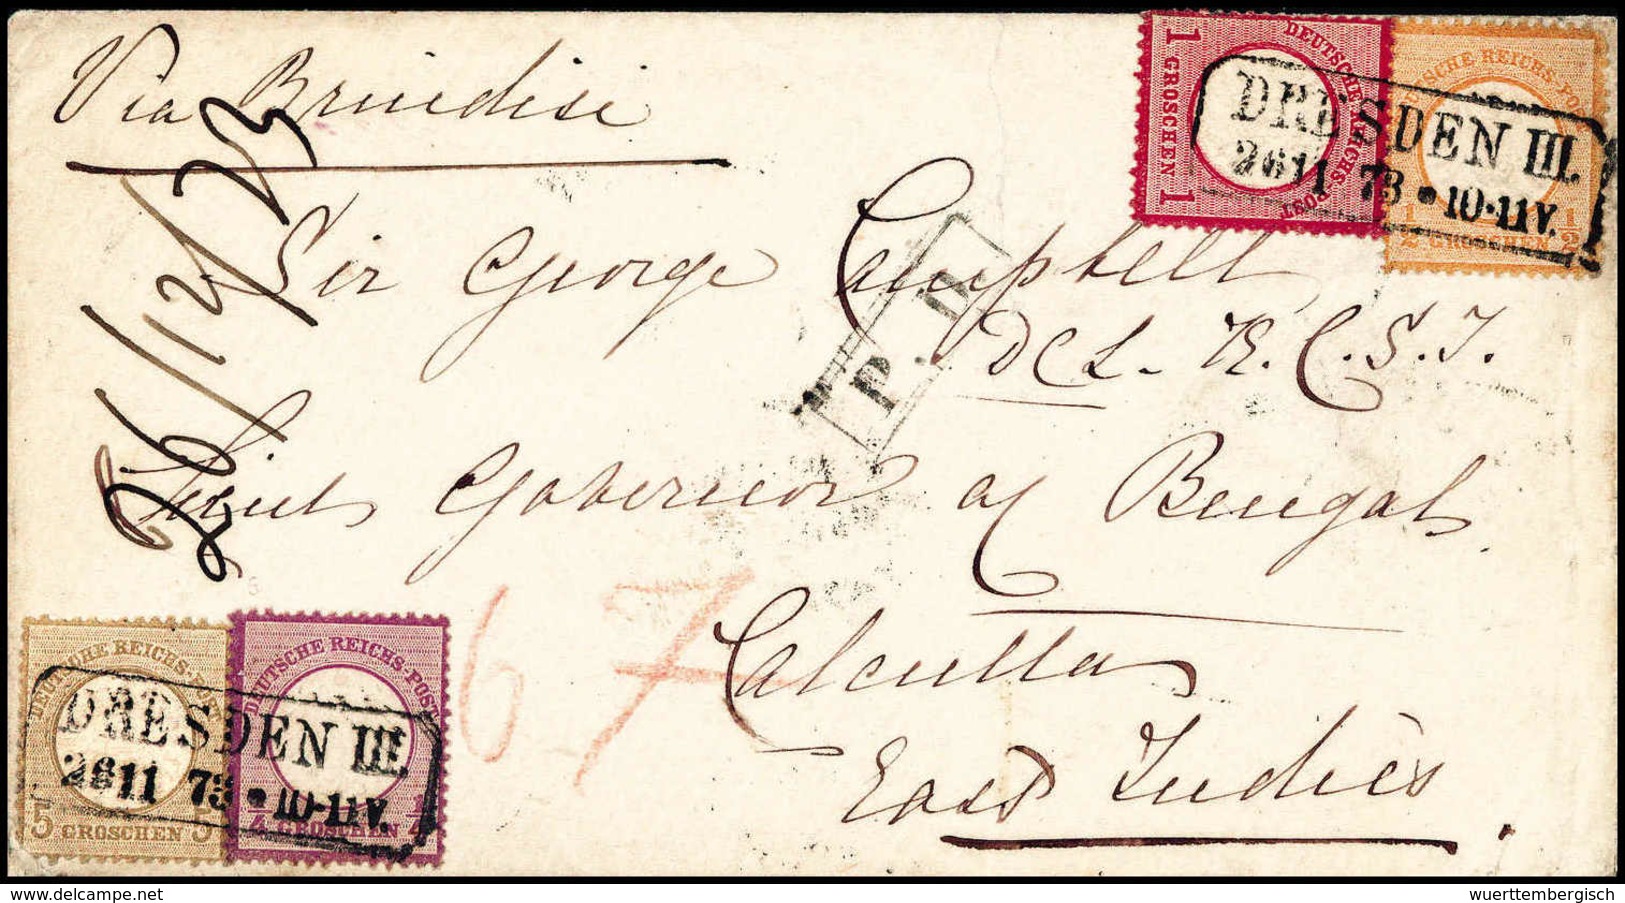 Via Brindisi
26/12/73
Sir George Campbell
DCL. K.C.S.I.
Lieut Governor of Bengal
Calcutta
East Indies.
P.D.
67
1 DEUTSCHE REICHS-POST 1
GROSCHEN
DEUTSCHE REICHS-POST
1/2 GROSCHEN 1/2
DRESDEN III.
26 11 73 • 10-11V.
DEUTSCHE REICHS-POST
5 GROSCHEN 5
DEUTSCHE REICHS-POST
1/4 GROSCHEN 1/4
DRESDEN III.
26 11 73 • 10-11V.
delcampe.net
wuerttembergisch